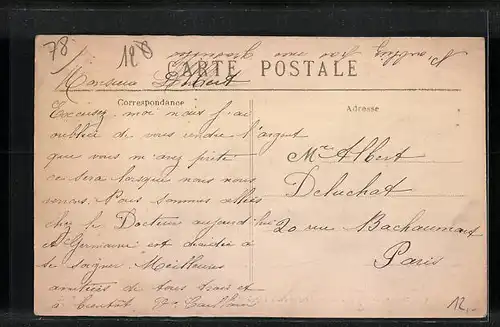 78
128
CARTE POSTALE
Monsieur Albert
Correspondance
Adresse
Excusez moi mais j'ai
oublier de vous rendre l'argent
que vous m'avez prêté
ce sera lorsque nous nous
verrons. Nous sommes allées
chez le Docteur aujourd'hui
et Germaine est décidée à
se soigner Meilleures
amitiés de tous trois et
à bientôt
Mr Albert
Deluchat
20 rue Bachaumont
Paris
12,-